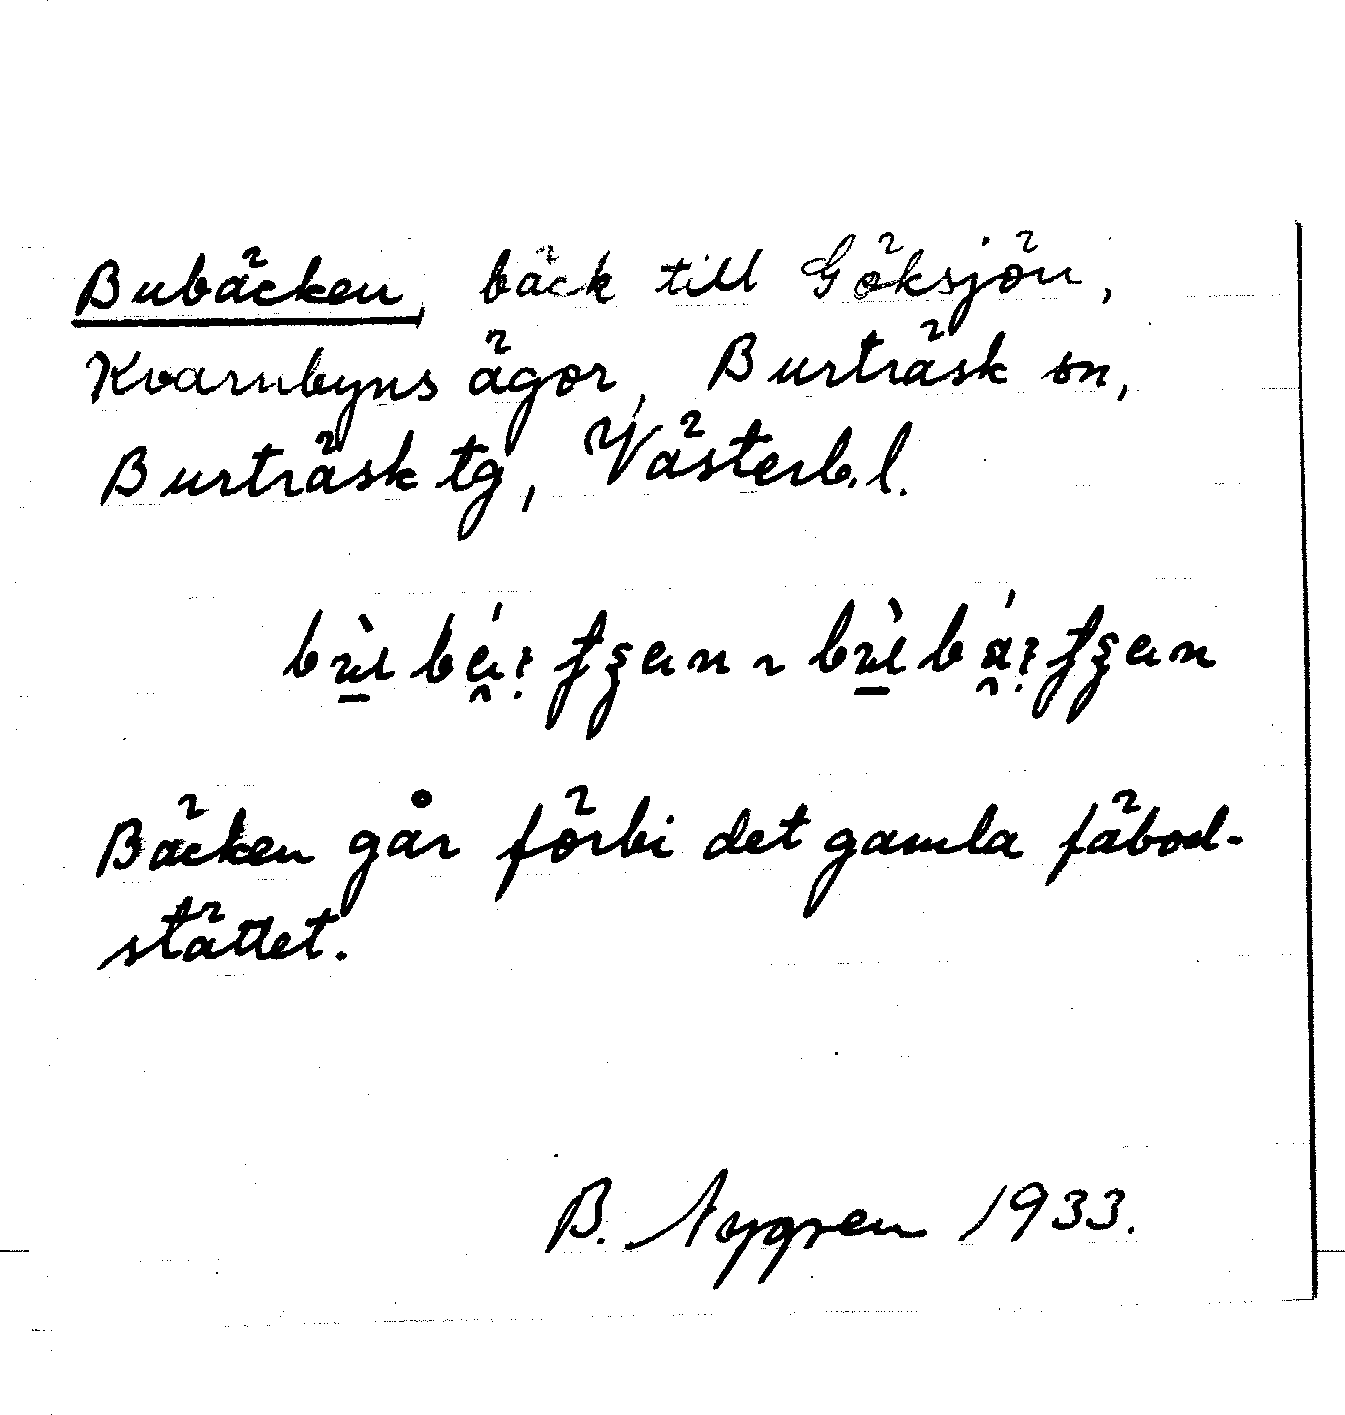 Bubäcken, bäck till Göksjön,
Kvarnbyns ägor, Burträsk sn,
Burträsk tg, Västerb. l.
Bäcken går förbi det gamla fäbod-
stället.
B. Nygren 1933.